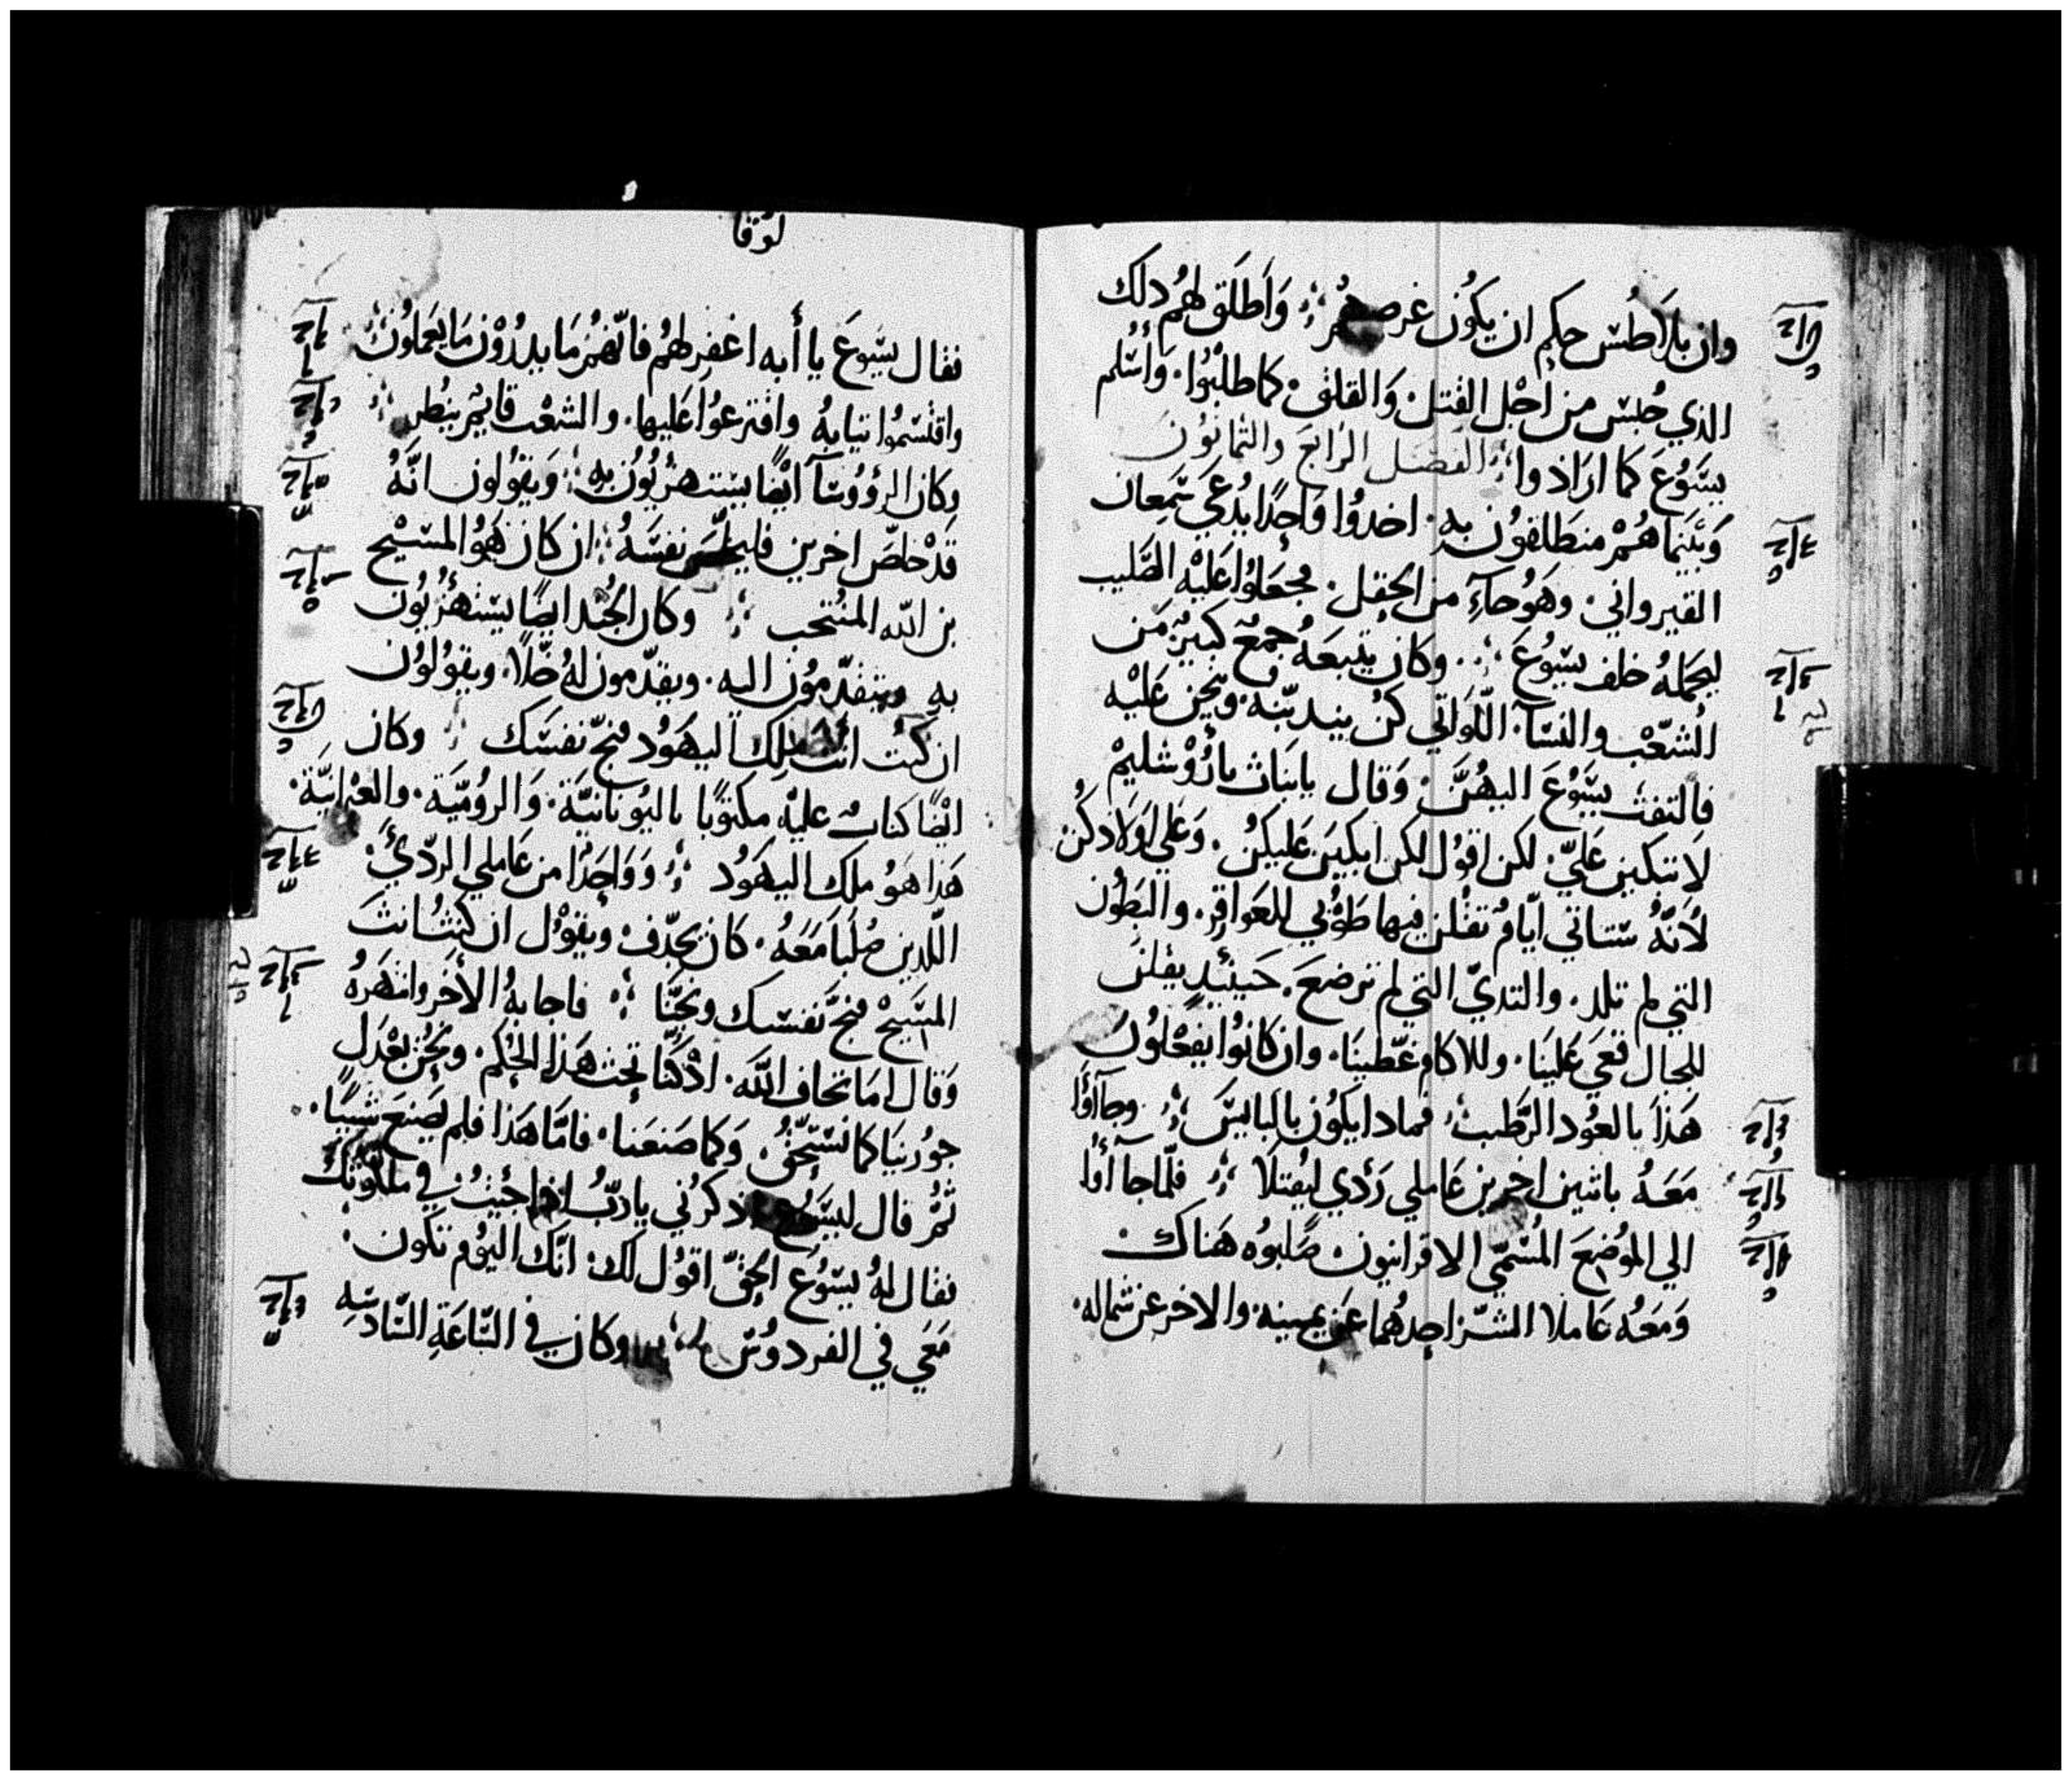 وان بلَاطُس حكم ان يكُون غرضهُم ؛ وَاَطلَق لهُم دلك
الذي حُبس من اَجْل القتل. وَالقلق. كما طلبُوا. وَأسْلم
يسَوُعَ كمَا ارَادوا ؛ الفصَل الرَابعَ والثمانوُنَ
وَبَينَمَا هُمْ منطَلقوُن بهِ. اخدوُا وَاحِدًا يُدعَي سَمِعان
القيرواني. وهَوُ جاَءِ من الحقل. فجعَلوُا عَليْه الصَليب
ليحمَلهُ خلف يسَوُعَ ؛ وكان يتبعَهُ جمعٌ كبيرٌ مَن
الشعْب والنسَآ. اللّوَاتي كنُ يندبنّه. ويحزن عَليْه
فالتفتَ يسَوُعَ اليهُنَّ. وَقال يابنَات يارُوشليمْ
لَا تبكين عَليّ. لكن اقوُل لكن ابكينَ عَليكنُ. وَعَلي اوَلَادكُن
لأنَّهُ ستاتي ايّامٌ تقلنُ فيها طوُبي للعَواقرِ. والبَطوُن
التي لم تلد. والتديّ التي لم ترضعَ. حَينئِدٍ يقلنَ
للجبال قعَي عَلينَا. وللاكام غطّينَا. وان كانوُا يفعَلوُنَ
هَذا بالعوُد الرَّطب. فمادا يكوُن باليابسَ ؛ وجآأوَا
مَعَهُ باتنين اخرين عَاملي رَدي ليُقتلَا ؛ فلَما جآأوا
الي الموُضِعَ المُسَمّي الاقرانيون. صَلبوُه هَناك
وَمَعَهُ عَاملا الشرّ احدهُما عَن يمينه. والاخر عن شماله.
لوُقا
فقال يسَوعَ يا أبه اغفر لهُم فانّهُمُ مَا يدرُوْن مَا يعَملوُنَ ؛
واقتسَموُا تيابهُ واقترعوُا عَليها. والشعْب قايمٌ ينظر ؛
وكان الرؤوُسَآ ايضًا يستهزيُوُن بهِ ؛ وَيقوُلون انَّهُ
قدْ خلصَّ اخرين فليخلص نفسَهُ ؛ ان كان هَوُ المسَيْح
بن اللّه المنُتخب ؛ وكان الجُند ايضًا يستهزُيوُن
بهِ ويتقدّموُن اليهِ. ويقدّمون لهُ خلًّا. ويقوُلوُن
ان كنُت انت ملك اليهَوُد فنجّ نفسَك ؛ وكان
ايضًا كتابٌ عليْه مكتوُبًا باليوُنانيَّة. وَالروُميَّة. والعبرانيَّة.
هَذا هَوُ ملك اليهَوُد ؛ وَوَاحِدًا من عَاملي الردّيَ.
اللّدين صُلبَا مَعَهُ. كانَ يجدّف. ويقوُل ان كنتُ انتَ
المسَيحْ فنجّ نفسَك ونجّنَا ؛ فاجابهُ الأخَر وانتهَرهُ
وَقال امَا تخاف اللّهَ. ادْ كنّا تحت هَذا الحُكم. ونحُنُ بعْدَل
جوُزينَا كما نستَحقُ. وَكما صَنعَنا. فامَّا هَذا فلم يَصَنعَ شيًا.
ثمُّ قال ليسَوُع اذكرُني ياربُّ اذا جئيتُ في ملكوُتك
فقال لهُ يسَوُع الحقّ اقوُل لك. انّك اليوُم تكون.
مَعَي في الفردوُس ؛ وكان في السّاعَةِ السّادسَهِ